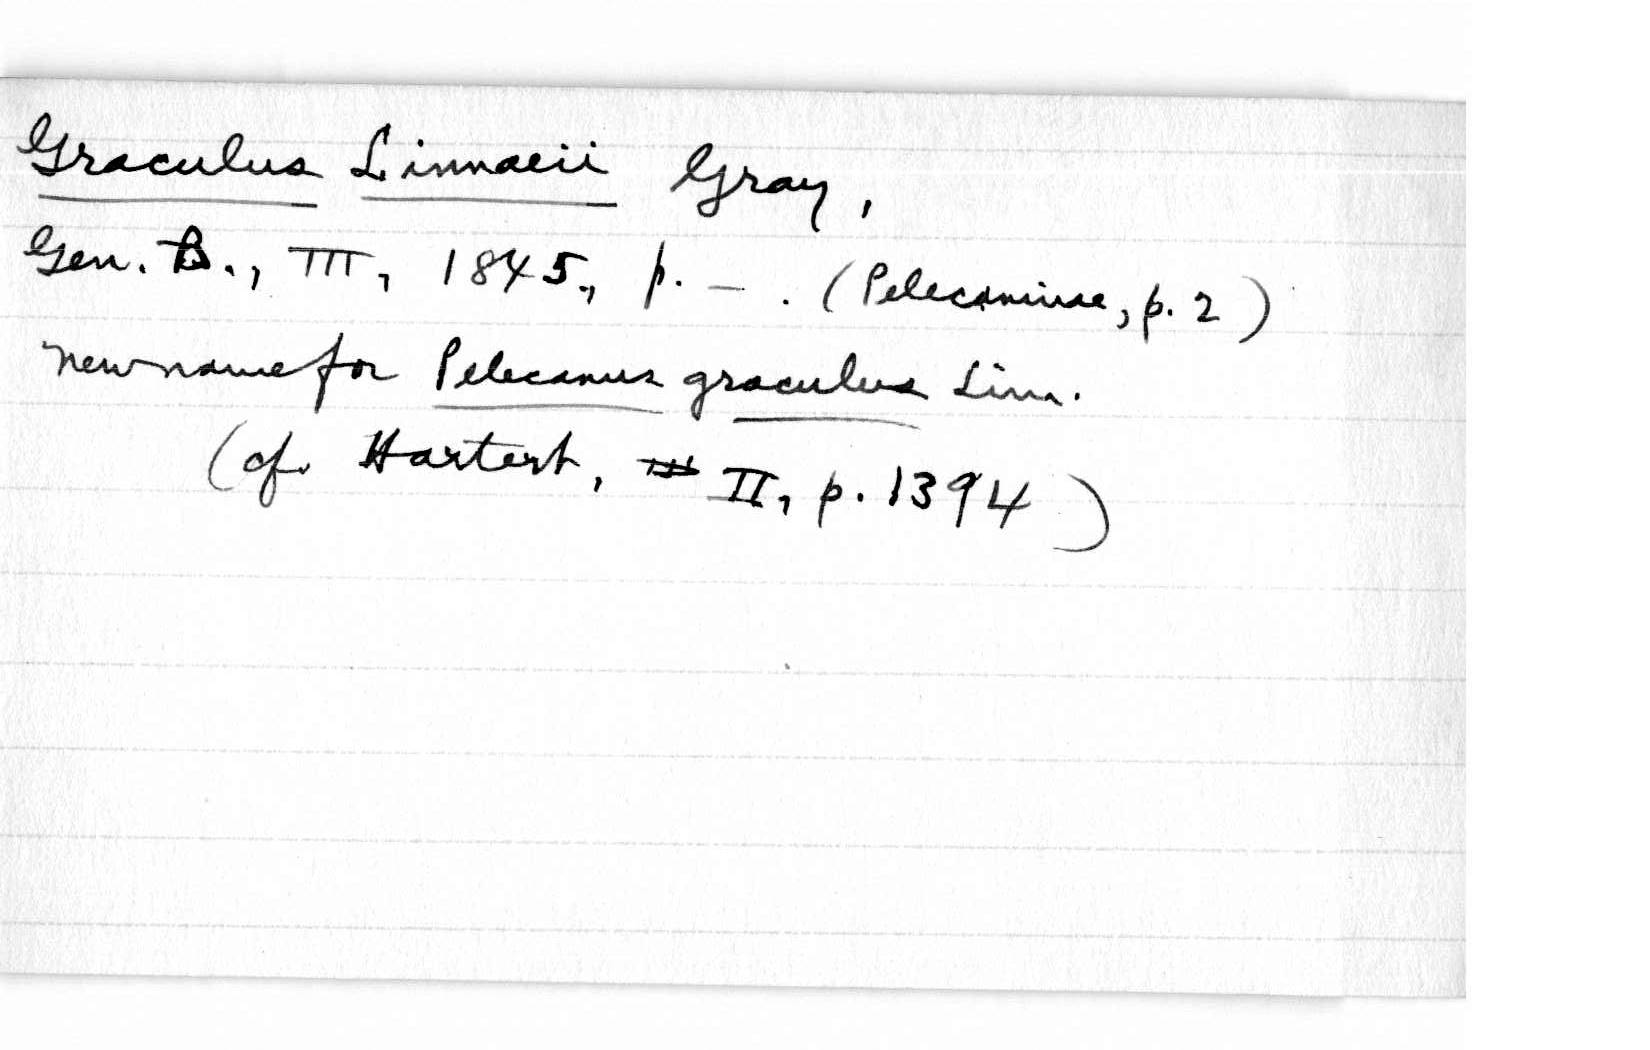 Graculus Linnaeii Gray,
Gen. B., III, 1845, p. — . (Pelecaninae, p. 2)
new name for Pelecanus graculus Linn.
(cf. Hartert, II, p. 1394)